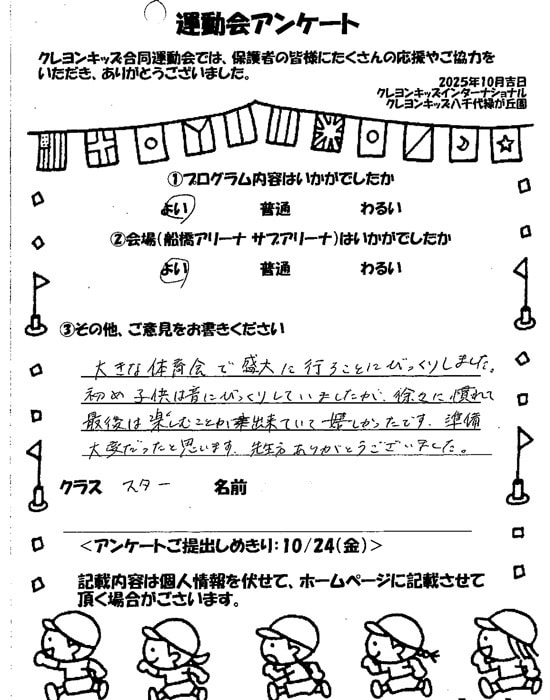 運動会アンケート
クレヨンキッズ合同運動会では、保護者の皆様にたくさんの応援やご協力を
いただき、ありがとうございました。
2025年10月吉日
クレヨンキッズインターナショナル
クレヨンキッズ八千代緑が丘園
①プログラム内容はいかがでしたか
よい 普通 わるい
②会場(船橋アリーナ サブアリーナ)はいかがでしたか
よい 普通 わるい
③その他、ご意見をお書きください
大きな体育会で盛大に行うことにびっくりしました。
初め子供は音にびっくりしていましたが、徐々に慣れて
最後は楽しむことが出来ていて嬉しかったです。準備
大変だったと思います。先生方ありがとうございました。
クラス スター 名前
<アンケートご提出しめきり:10/24(金)>
記載内容は個人情報を伏せて、ホームページに記載させて
頂く場合がございます。